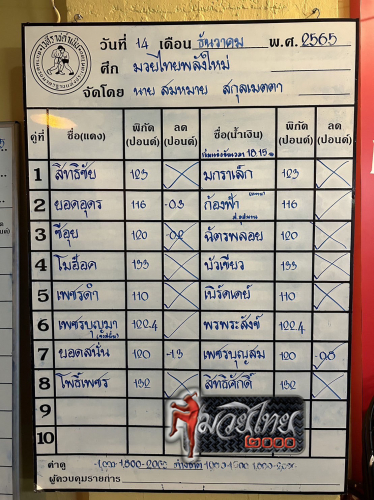 วันที่ 14 เดือน ธันวาคม พ.ศ. 2565
ศึก มวยไทยพลังใหม่
จัดโดย นาย สมหมาย สกุลเมตตา
คู่ที่ ชื่อ(แดง) พิกัด (ปอนด์) ลด (ปอนด์) ชื่อ(น้ำเงิน) พิกัด (ปอนด์) ลด (ปอนด์)
เริ่มแข่งขันเวลา 18.15 น.
1 สิทธิชัย 123 มกราเล็ก 123
2 ยอดอุดร 116 -0.3 ก้องฟ้า 116
3 ซีอุย 120 -0.2 ฉัตรพลอย 120
4 โมฮ็อค 133 บัวเขียว 133
5 เพชรดำ 110 เบิร์ดเดย์ 110
6 เพชรบุญมา 122.4 พรพระสังข์ 122.4
7 ยอดสนั่น 120 -1.3 เพชรบุญสม 120 -0.8
8 โพธิ์เพชร 132 สิทธิศักดิ์ 132
9
10
มวยไทย
๒๐๐๐
ค่าดู
ผู้ควบคุมรายการ